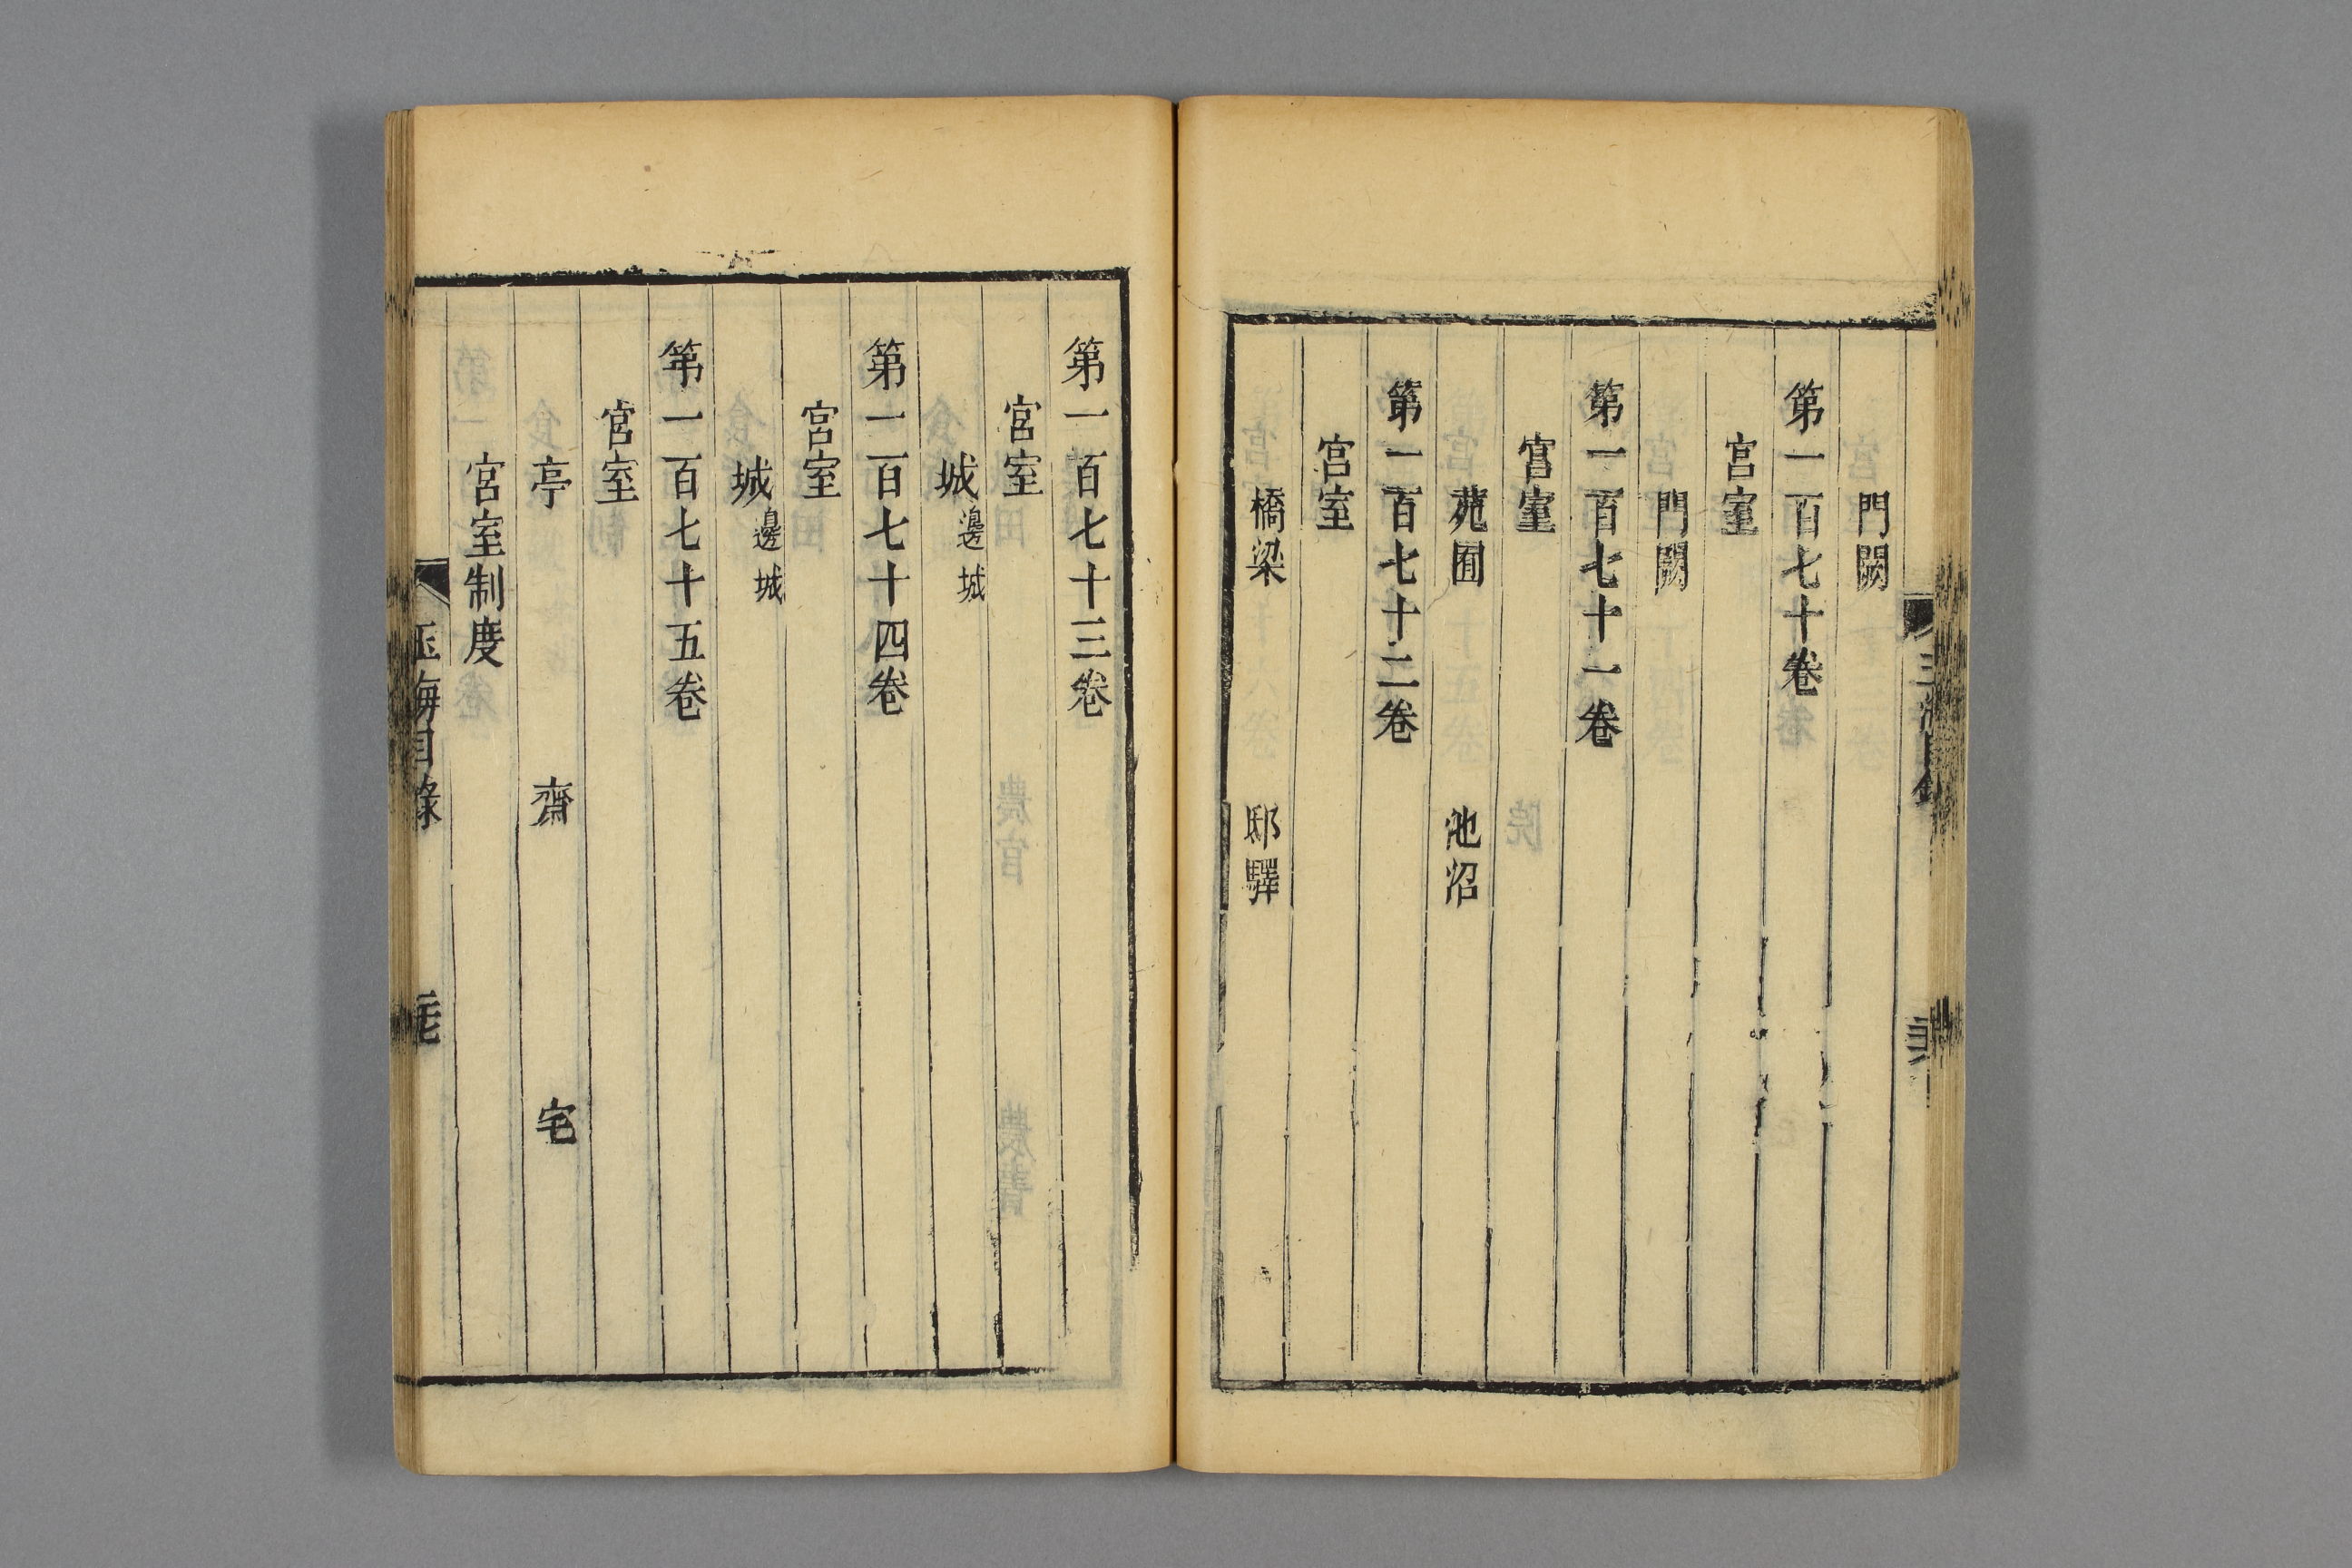 門闕
第一百七十卷
宮室
門闕
第一百七十一卷
宮室
苑囿 池沼
第一百七十二卷
宮室
橋梁 邸驛
第一百七十三卷
宮室
城 邊城
第一百七十四卷
宮室
城 邊城
第一百七十五卷
宮室
亭 齋 宅
宮室制度
玉海目錄